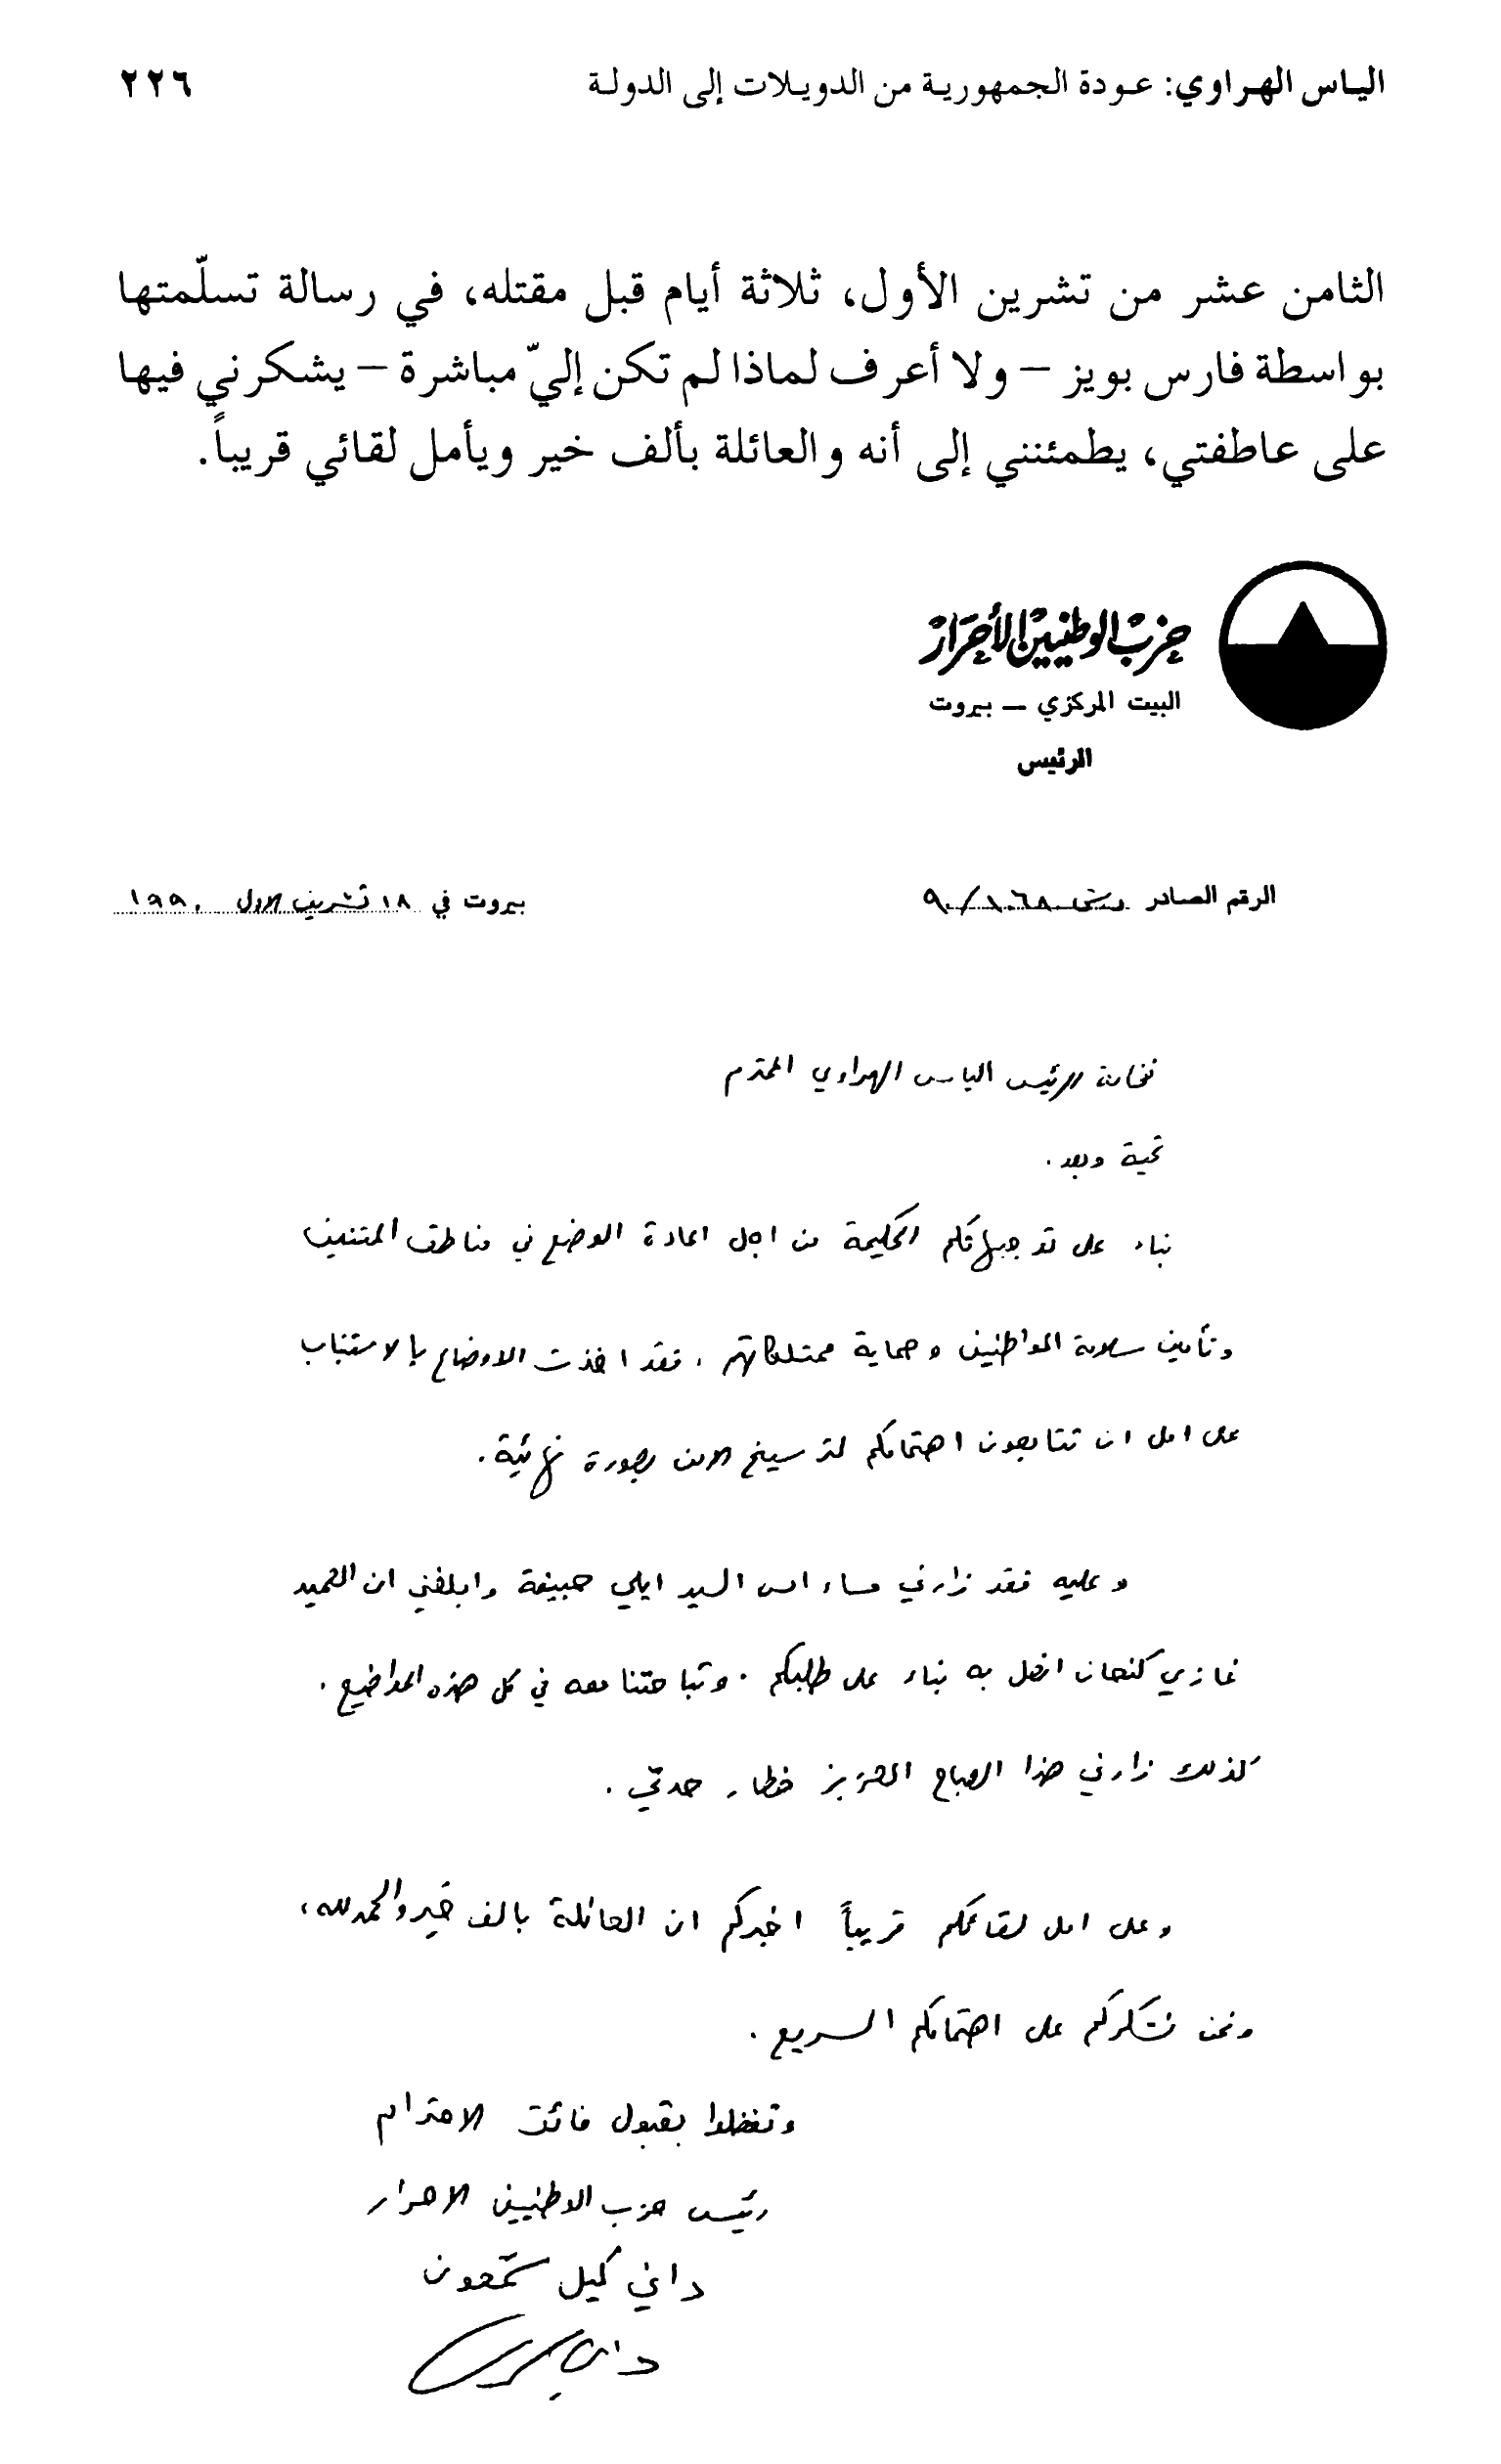 الياس الهراوي: عودة الجمهورية من الدويلات إلى الدولة
٢٢٦
الثامن عشر من تشرين الأول، ثلاثة أيام قبل مقتله، في رسالة تسلّمتها
بواسطة فارس بويز – ولا أعرف لماذا لم تكن إليّ مباشرة – يشكرني فيها
على عاطفتي، يطمئنني إلى أنه والعائلة بألف خير ويأمل لقائي قريباً.
حزب الوطنيين الأحرار
البيت المركزي – بيروت
الرئيس
الرقم الصادر ١٦٨/٩٠
بيروت في ١٨ تشرين الاول ١٩٩٠
فخامة الرئيس الياس الهراوي المحترم
تحية وبعد.
بناء على توجيهاتكم الحكيمة من اجل اعادة الوضع في مناطق المتنين
وتأمين سلامة المواطنين وحماية ممتلكاتهم، فقد اخذت الاوضاع بالاستتباب
على امل ان تتابعون اهتمامكم لترسيخ الامن بصورة نهائية.
وعليه فقد زارني مساء امس السيد ايلي حبيقة وابلغني ان العميد
غازي كنعان اتصل به بناء على طلبكم. وتباحثنا معه في كل هذه المواضيع.
كذلك زارني هذا الصباح العزيز خطار حدتي.
وعلى امل لقائكم قريباً اخبركم ان العائلة بالف خير والحمدلله،
ونحن نشكركم على اهتمامكم السريع.
وتفضلوا بقبول فائق الاحترام
رئيس حزب الوطنيين الاحرار
داني كميل شمعون